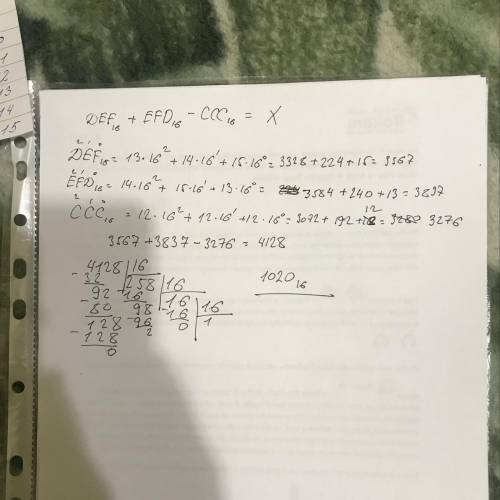 1
2
13
14
15
DEF₁₆ + EFD₁₆ - CCC₁₆ = X
²D¹E⁰F₁₆ = 13·16² + 14·16¹ + 15·16⁰ = 3328 + 224 + 15 = 3567
²E¹F⁰D₁₆ = 14·16² + 15·16¹ + 13·16⁰ = 3584 + 240 + 13 = 3837
²C¹C⁰C₁₆ = 12·16² + 12·16¹ + 12·16⁰ = 3072 + 192 + 12 = 3276
3567 + 3837 - 3276 = 4128
- 4128 | 16
32 258 | 16
92 16 16 | 16
- 80 98 - 16 1
128 - 96 0
- 128 2
0
1020₁₆